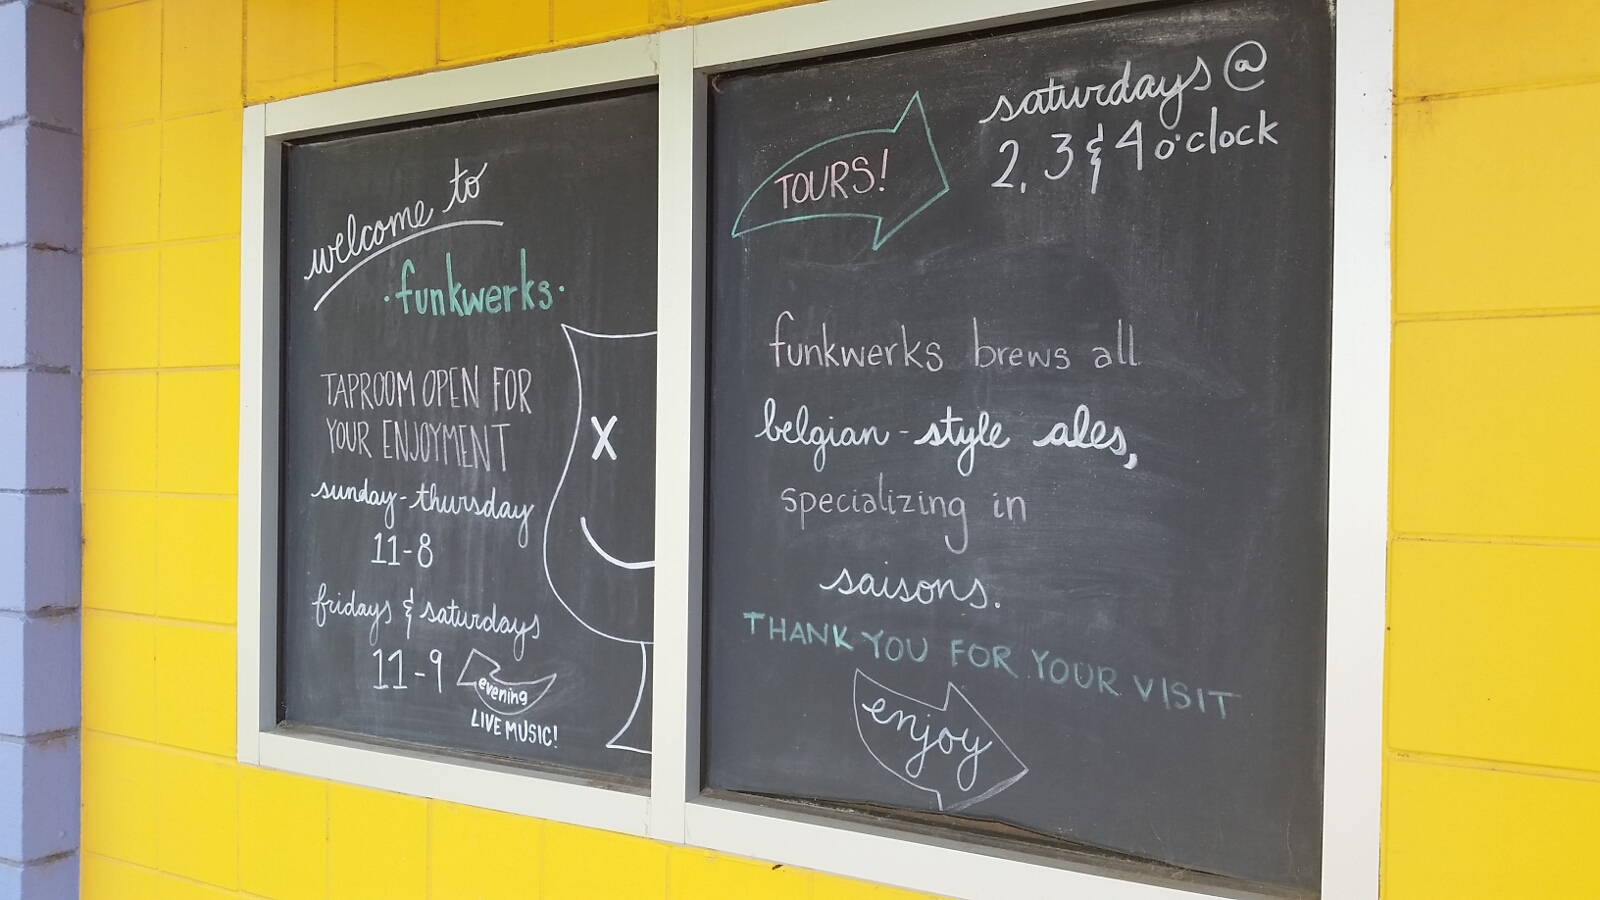 welcome to
·funkwerks·
TAPROOM OPEN FOR
YOUR ENJOYMENT
sunday-thursday
11-8
fridays & saturdays
11-9
evening
LIVE MUSIC!
X
TOURS!
saturdays @
2, 3 & 4 o'clock
funkwerks brews all
belgian-style ales,
specializing in
saisons.
THANK YOU FOR YOUR VISIT
enjoy